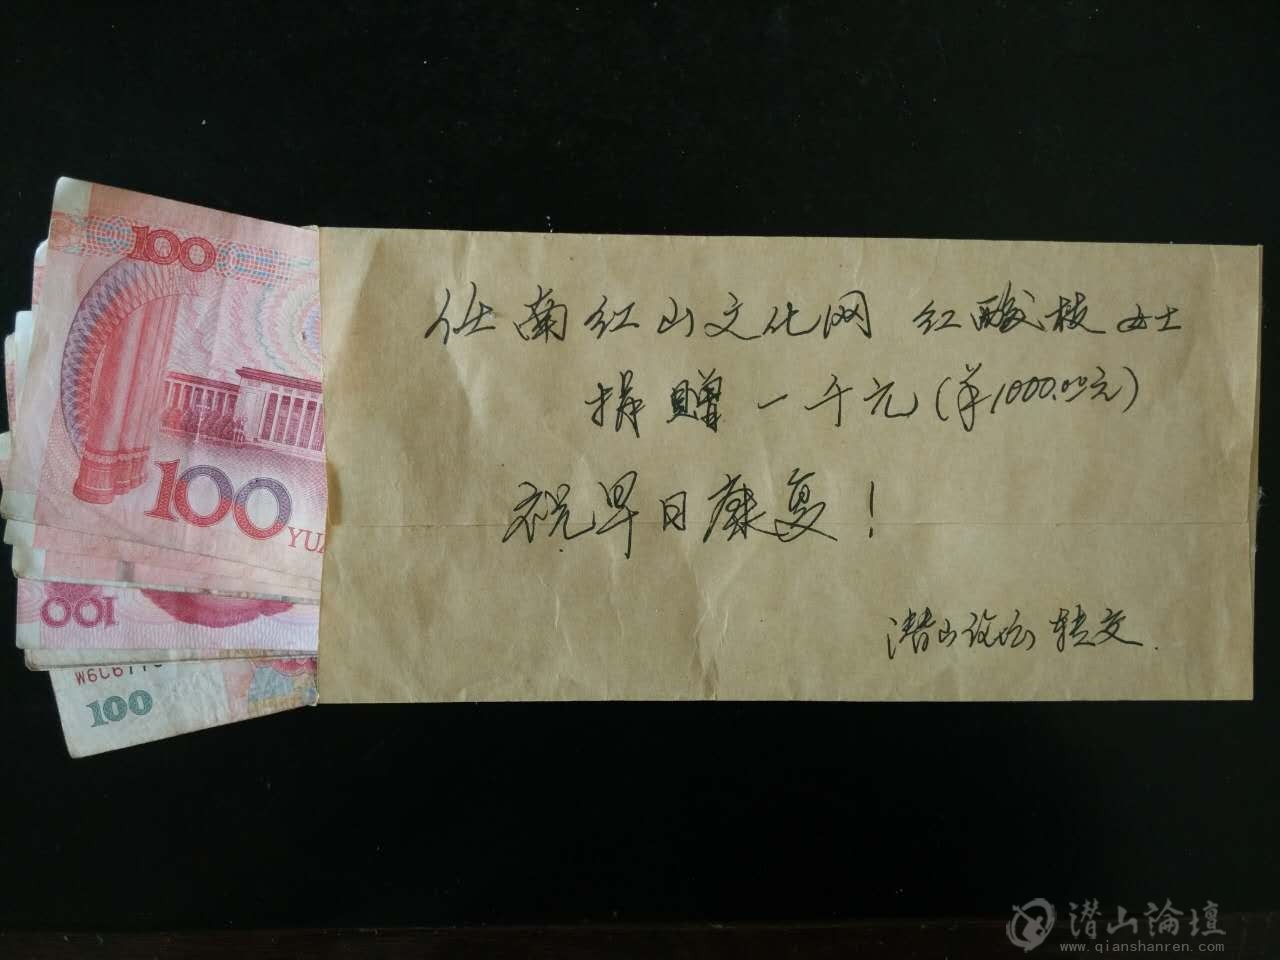 100
100
YUA
100
W9C9110
100
仕南红山文化网 红酸枝女士
捐赠一千元(¥1000.00元)
祝早日康复!
潜山论坛转交.
潜山論壇
www.qianshanren.com